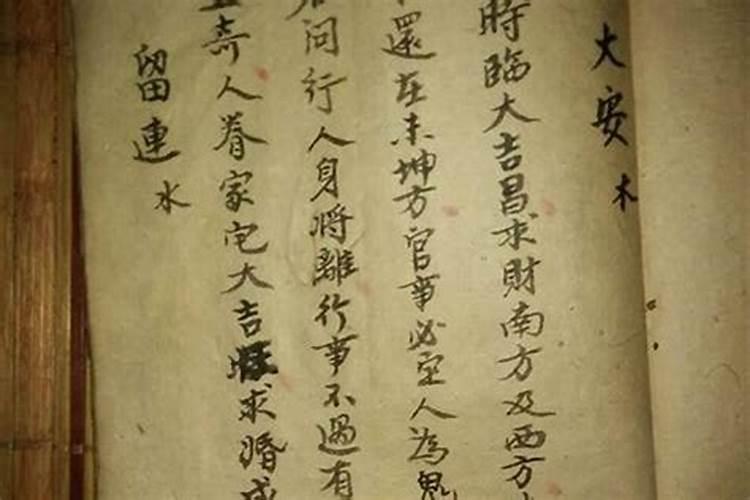 大安木
時臨大吉昌求財南方及西方
還在未坤方官事必定人為鬼
問行人身将離行事不過有
奇人眷家宅大吉旺求婚成
留連水